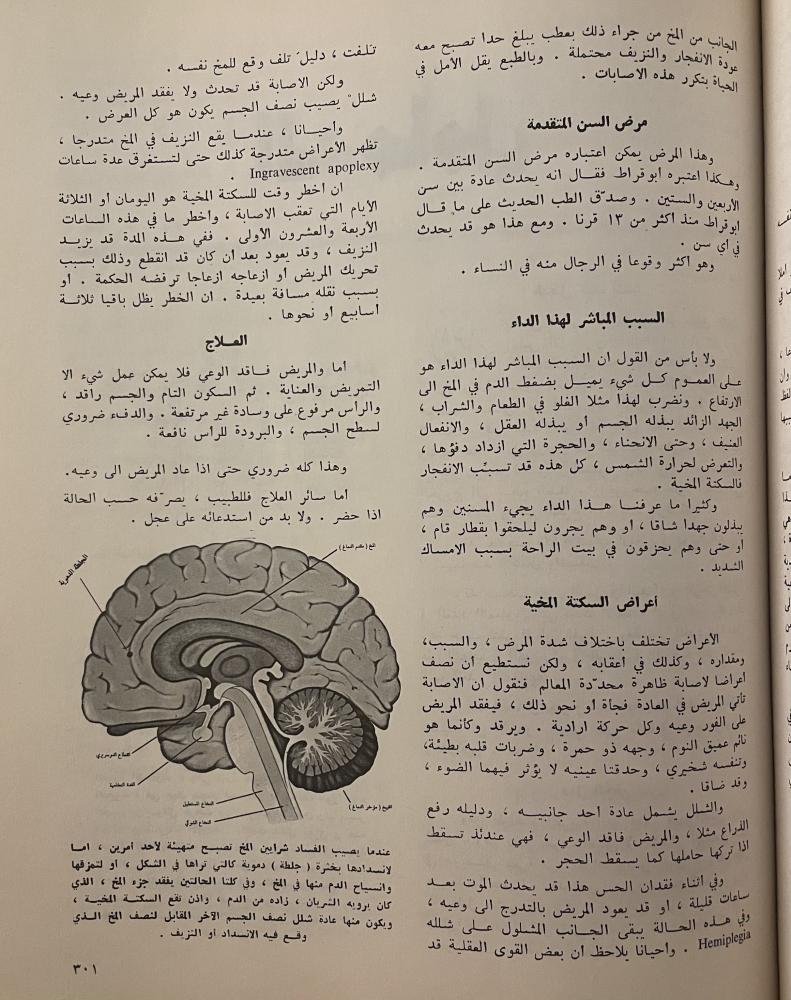 الجانب من المخ من جراء ذلك بعطب يبلغ حدا تصبح معه
عودة الانفجار والنزيف محتملة . وبالطبع يقل الأمل في
الحياة بتكرر هذه الاصابات .
مرض السن المتقدمة
وهذا المرض يمكن اعتباره مرض السن المتقدمة .
وهكذا اعتبره ابوقراط فقال انه يحدث عادة بين سن
الأربعين والستين . وصدّق الطب الحديث على ما قال
ابوقراط منذ اكثر من ١٣ قرنا . ومع هذا هو قد يحدث
في اي سن .
وهو اكثر وقوعا في الرجال منه في النساء .
السبب المباشر لهذا الداء
ولا بأس من القول ان السبب المباشر لهذا الداء هو
على العموم كل شيء يميل بضغط الدم في المخ الى
الارتفاع . ونضرب لهذا مثلا الغلو في الطعام والشراب ،
الجهد الزائد يبذله الجسم او يبذله العقل ، والانفعال
العنيف ، وحتى الانحناء ، والحجرة التي ازداد دفؤها ،
والتعرض لحرارة الشمس ، كل هذه قد تسبّب الانفجار
فالسكتة المخية .
وكثيرا ما عرفنا هذا الداء يجيء المسنين وهم
يبذلون جهدا شاقا ، او وهم يجرون ليلحقوا بقطار قام ،
او حتى وهم يحزقون في بيت الراحة بسبب الامساك
الشديد .
أعراض السكتة المخية
الأعراض تختلف باختلاف شدة المرض ، والسبب،
ومقداره ، وكذلك في أعقابه ، ولكن نستطيع ان نصف
اعراضا لاصابة ظاهرة محدّدة المعالم فنقول ان الاصابة
تأتي المريض في العادة فجأة او نحو ذلك ، فيفقد المريض
على الفور وعيه وكل حركة ارادية . ويرقد وكأنما هو
نائم عميق النوم ، وجهه ذو حمرة ، وضربات قلبه بطيئة،
وتنفسه شخيري ، وحدقتا عينيه لا يؤثر فيهما الضوء ،
وقد ضاقا .
والشلل يشمل عادة احد جانبيه ، ودليله رفع
الذراع مثلا ، والمريض فاقد الوعي ، فهي عندئذ تسقط
اذا تركها حاملها كما يسقط الحجر .
وفي اثناء فقدان الحس هذا قد يحدث الموت بعد
ساعات قليلة ، او قد يعود المريض بالتدرج الى وعيه ،
وفي هذه الحالة يبقى الجانب المشلول على شلله
Hemiplegia . واحيانا يلاحظ ان بعض القوى العقلية قد
تلفت ، دليل تلف وقع للمخ نفسه .
ولكن الاصابة قد تحدث ولا يفقد المريض وعيه .
شلل يصيب نصف الجسم يكون هو كل العرض .
وأحيانا ، عندما يقع النزيف في المخ متدرجا ،
تظهر الأعراض متدرجة كذلك حتى لتستغرق عدة ساعات
Ingravescent apoplexy .
ان اخطر وقت للسكتة المخية هو اليومان أو الثلاثة
الأيام التي تعقب الإصابة ، وأخطر ما في هذه الساعات
الأربعة والعشرون الأولى . ففي هذه المدة قد يزيد
النزيف ، وقد يعود بعد أن كان قد انقطع وذلك بسبب
تحريك المريض أو ازعاجه ازعاجا ترفضه الحكمة . أو
بسبب نقله مسافة بعيدة . ان الخطر يظل باقيا ثلاثة
أسابيع أو نحوها .
العلاج
أما والمريض فاقد الوعي فلا يمكن عمل شيء الا
التمريض والعناية . ثم السكون التام والجسم راقد ،
والرأس مرفوع على وسادة غير مرتفعة . والدفء ضروري
لسطح الجسم ، والبرودة للرأس نافعة .
وهذا كله ضروري حتى اذا عاد المريض الى وعيه.
أما سائر العلاج فللطبيب ، يصرّفه حسب الحالة
اذا حضر . ولا بد من استدعائه على عجل .
المخ ( مقدم الدماغ )
الغدة النخامية
النخاع المستطيل
النخاع الشوكي
المخيخ ( مؤخر الدماغ )
عندما يصيب الفساد شرايين المخ تصبح متهيئة لأحد أمرين ، اما
لانسدادها بخثرة ( جلطة ) دموية كالتي تراها في الشكل ، او لتمزقها
وانسياح الدم منها في المخ ، وفي كلتا الحالتين يفقد جزء المخ ، الذي
كان يرويه الشريان ، زاده من الدم ، واذن تقع السكتة المخية ،
ويكون منها عادة شلل نصف الجسم الآخر المقابل لنصف المخ الذي
وقع فيه الانسداد أو النزيف .
٣٠١